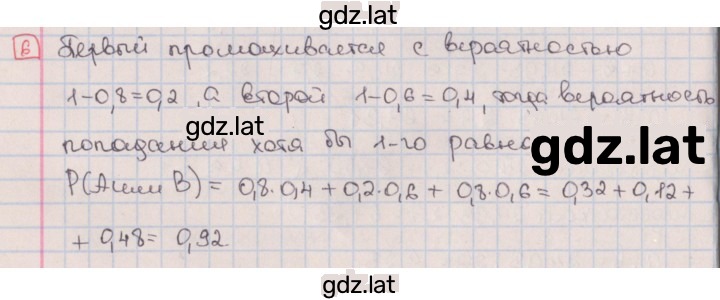 gdz.lat
6 Первый промахивается с вероятностью
1-0,8=0,2, а второй 1-0,6=0,4, тогда вероятность
gdz.lat
попадания хотя бы 1-го равна
gdz.lat
P(A или B) = 0,8·0,4 + 0,2·0,6 + 0,8·0,6 = 0,32 + 0,12 +
+ 0,48 = 0,92
gdz.lat